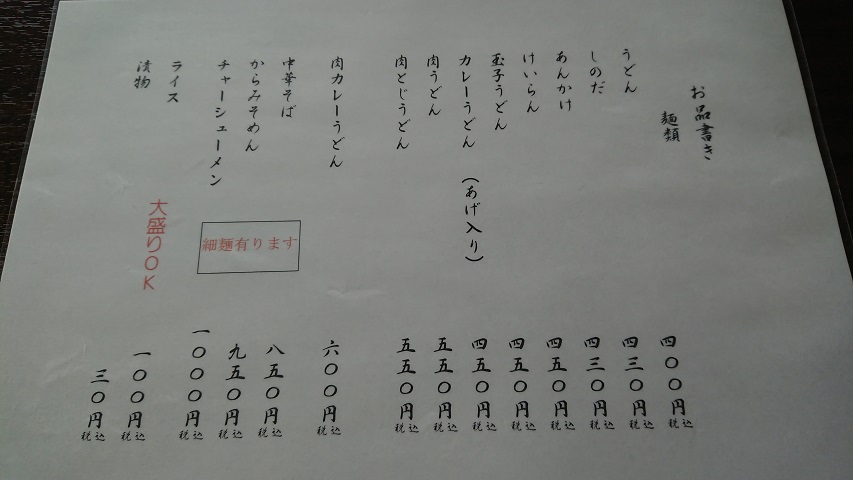 お品書き
麺類
うどん 四〇〇円税込
しのだ 四三〇円税込
あんかけ 四三〇円税込
けいらん 四五〇円税込
玉子うどん 四五〇円税込
カレーうどん (あげ入り) 四五〇円税込
肉うどん 五五〇円税込
肉とじうどん 五五〇円税込
肉カレーうどん 六〇〇円税込
中華そば 八五〇円税込
からみそめん 九五〇円税込
チャーシューメン 一〇〇〇円税込
ライス 一〇〇円税込
漬物 三〇円税込
細麺有ります
大盛りOK